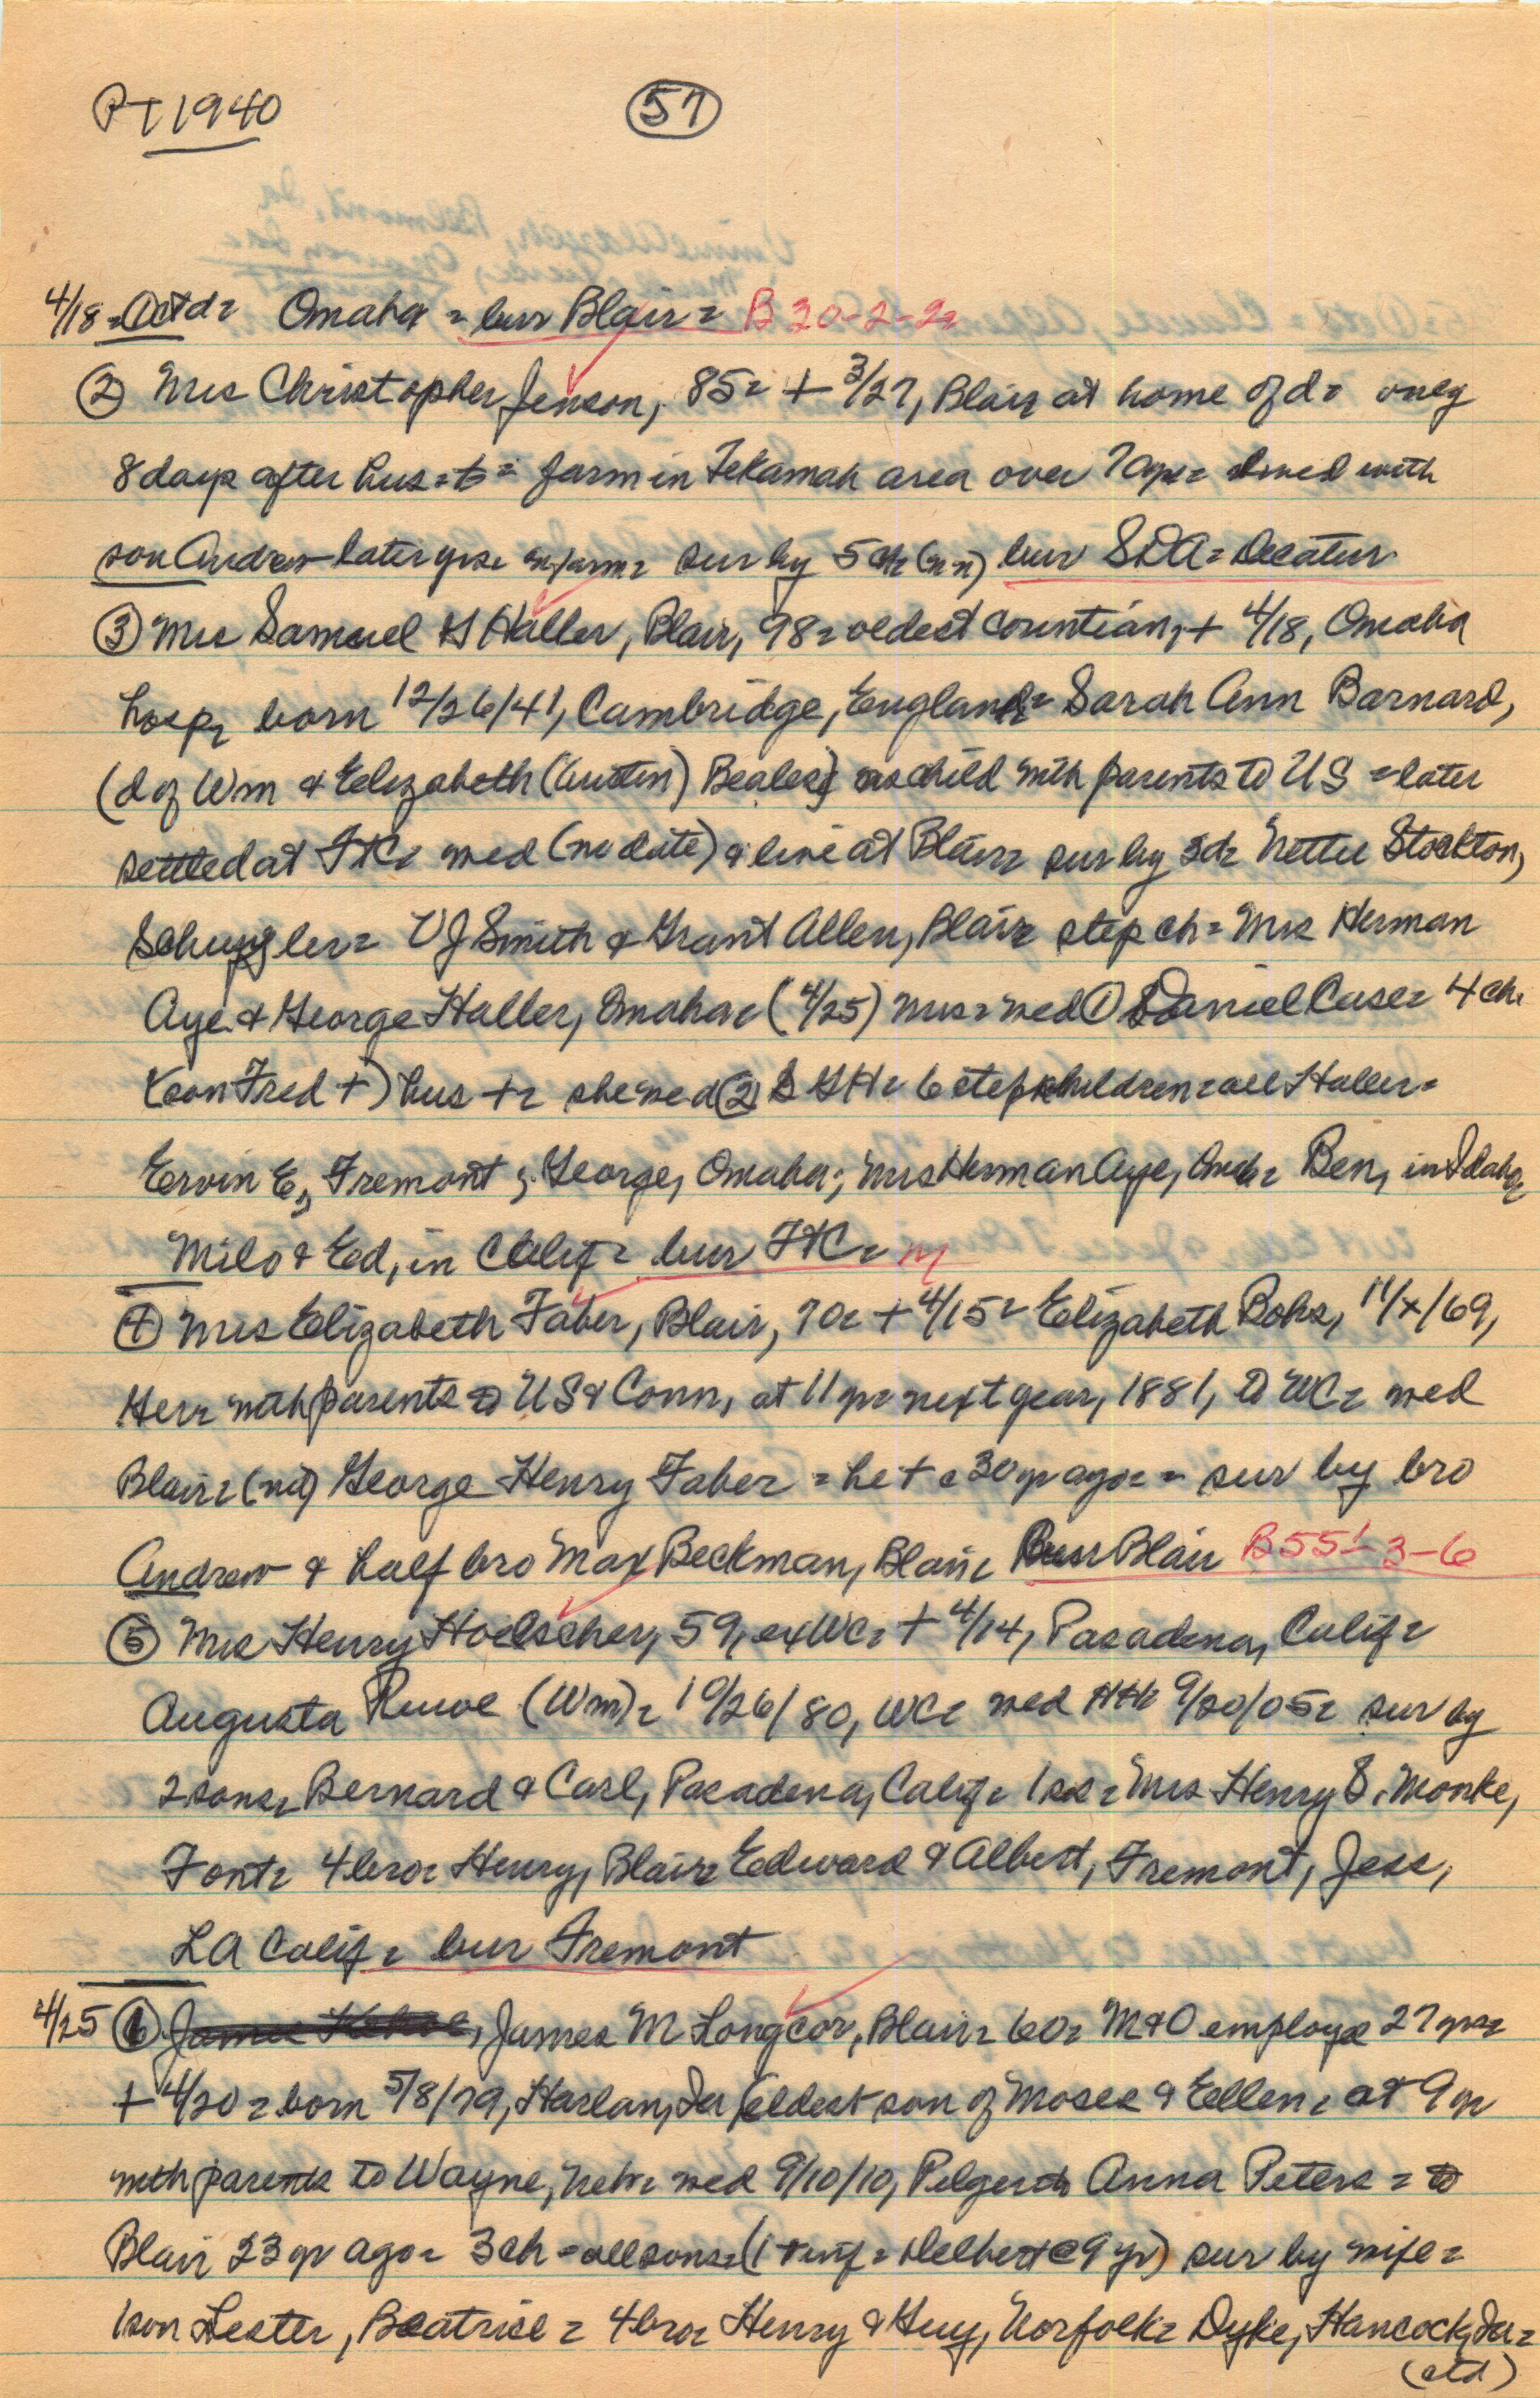 PT 1940
57
4/18 = Octd = Omaha = bur Blair = B 20-2-2=
② Mrs Christopher Jenson, 85= + 3/27, Blair at home of d= only
8 days after hus = farm in Tekamah area over 70 yrs= lived with
son Andrew later yrs= on farm= sur by 5 ch= (nn) bur SDA = Decatur
③ Mrs Samuel G Haller, Blair, 98= oldest countian, + 4/18, Omaha
hosp, born 12/26/41, Cambridge, England= Sarah Ann Barnard,
(d of Wm & Elizabeth (Austin) Beales) as child with parents to US = later
settled at FtC= wed (no date) & live at Blair= sur by 3d= Nettie Stockton,
Schuyler= V J Smith & Grant Allen, Blair= step ch = Mrs Herman
Aye & George Haller, Omaha= (4/25) Mrs= wed ① Daniel Case= 4 ch=
(son Fred +) hus += she wed ② S G H= 6 stepchildren= all Haller=
Ervin E, Fremont; George, Omaha; Mrs Herman Aye, Omah= Ben, in Idaho
Milo & Ed, in Calif= bur FtC=
④ Mrs Elizabeth Faber, Blair, 70= + 4/15= Elizabeth Rohs, 11/x/69,
Ger= with parents to US & Conn, at 11 yr= next year, 1881, to WC= wed
Blair= (nd) George Henry Faber = he + c 30 yr ago= = sur by bro
Andrew & half bro Max Beckman, Blair= Bur Blair B55'-3-6
⑤ Mrs Henry Hoelscher, 59, ex WC= + 4/14, Pasadena, Calif=
Augusta Ruwe (Wm)= 10/26/80, WC= wed HH 9/20/05= sur by
2 sons= Bernard & Carl, Pasadena, Calif= 1 sis= Mrs Henry S. Monke,
Font= 4 bro= Henry, Blair= Edward & Albert, Fremont, Jess,
LA Calif= bur Fremont
4/25 ① James M Longcor, Blair= 60= M&O employe 27 yrs=
+ 4/20= born 5/8/79, Harlan, Ia (eldest son of Moses & Ellen= at 9 yr
with parents to Wayne, Neb= wed 9/10/10, Pilger= Anna Peters = to
Blair 23 yr ago= 3 ch = all sons= (1 + inf = Delbert @ 9 yr) sur by wife=
1 son Lester, Beatrice = 4 bro= Henry & Guy, Norfolk= Dyke, Hancock, Ia=
(ctd)